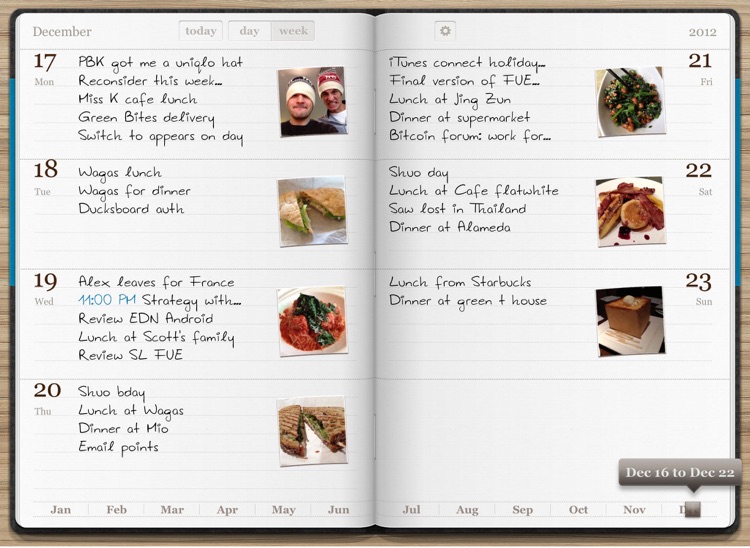 December
today
day
week
2012
17
Mon
PBK got me a uniqlo hat
Reconsider this week...
Miss K cafe lunch
Green Bites delivery
Switch to appears on day
18
Tue
Wagas lunch
Wagas for dinner
Ducksboard auth
19
Wed
Alex leaves for France
11:00 PM Strategy with...
Review EDN Android
Lunch at Scott's family
Review SL FUE
20
Thu
Shuo bday
Lunch at Wagas
Dinner at Mio
Email points
21
Fri
iTunes connect holiday...
Final version of FUE...
Lunch at Jing Zun
Dinner at supermarket
Bitcoin forum: work for...
22
Sat
Shuo day
Lunch at Cafe flatwhite
Saw lost in Thailand
Dinner at Alameda
23
Sun
Lunch from Starbucks
Dinner at green + house
Dec 16 to Dec 22
Jan Feb Mar Apr May Jun Jul Aug Sep Oct Nov